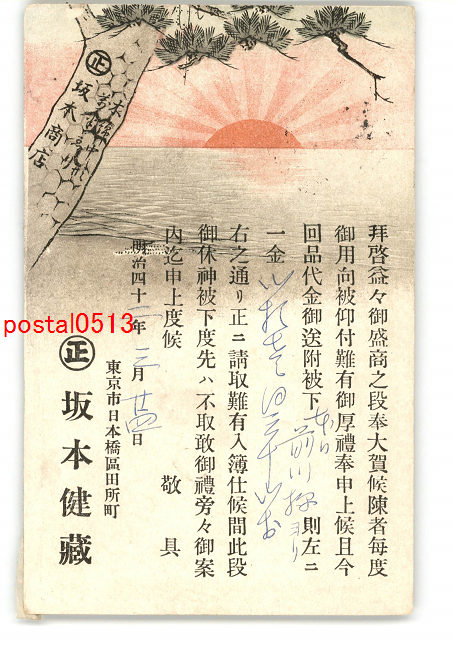 拝啓益々御盛商之段奉大賀候陳者毎度
御用向被仰付難有御厚禮奉申上候且今
回品代金御送附被下 前川 ヨリ 則左ニ
一金
右之通リ正ニ請取難有入簿仕候間此段
御休神被下度先ハ不取敢御禮旁々御案
内迄申上度候 敬具
明治四十一年三月廿四日
東京市日本橋區田所町
正 坂本健藏
正 坂本商店
postal0513